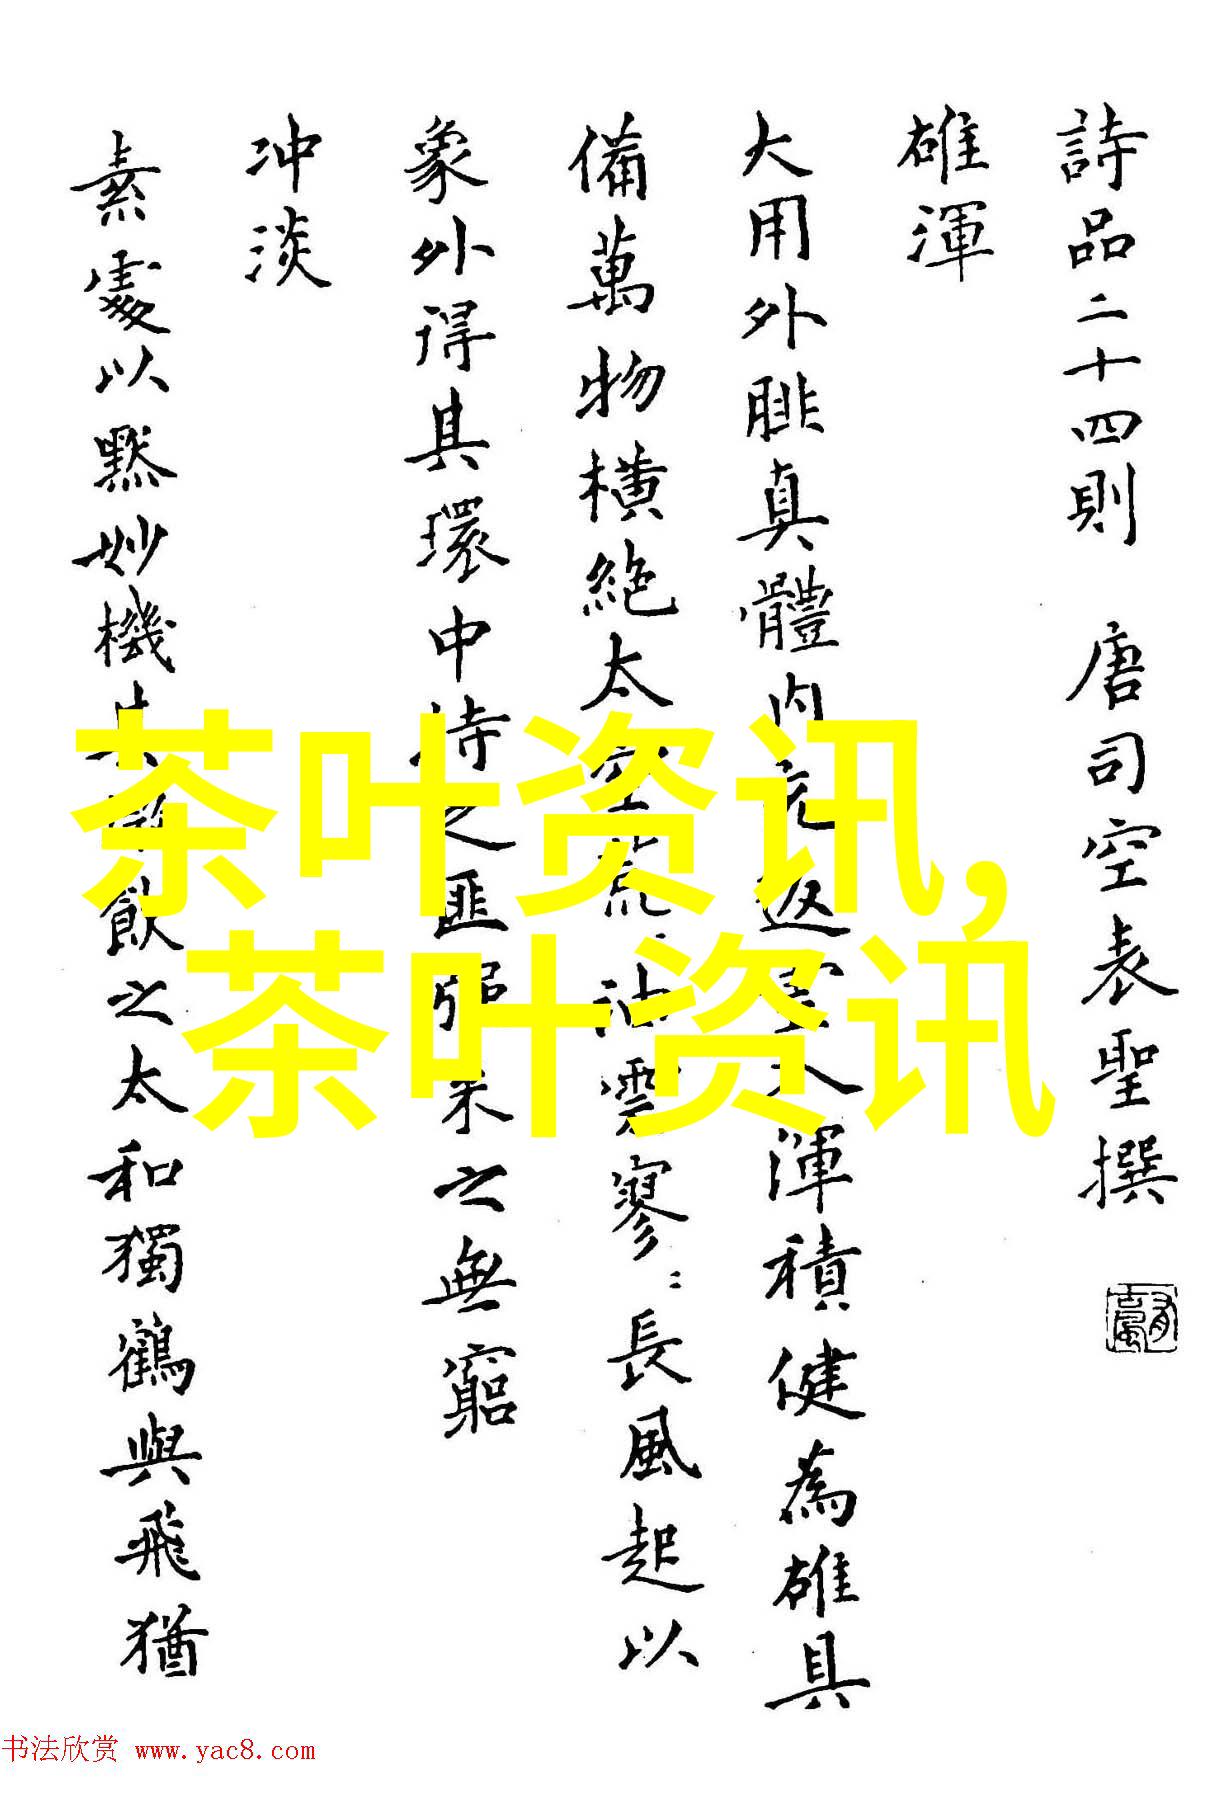 詩品二十四則 唐司空表聖撰
雄渾
大用外腓真體內充返入渾積健為雄具
備萬物橫絕太空荒〻油雲寥〻長風起以
象外得其環中持之匪强来之無窮
冲淡
素處以默妙機其飲之太和獨鶴與飛猶
茶叶资讯,
茶叶资讯
书法欣赏 www.yac8.com